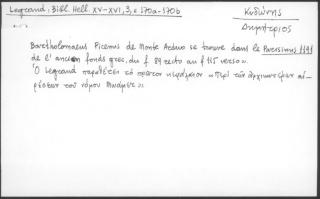 Legrand: Bibl. Hell. XV-XVI, 3, σ 570a-570b
Κυδώνης
Δημήτριος
Bartholomaeus Picenus de Monte Arduo se trouve dans le Parisinus 1191
de l'ancien fonds grec, du f. 89 recto au f. 115 verso».
Ὁ Legrand παραθέτει τὸ πρῶτον κεφάλαιον «Περὶ τῶν
τοῦ νόμου Μωάμετ».